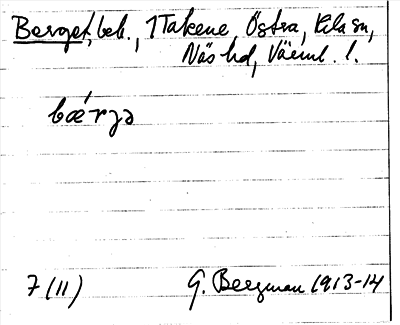 Berget, beb., 1 Takene, Östra, Kila sn,
Näs hd, Värml. l.
bærjə
7 (11) G. Bergman 1913-14